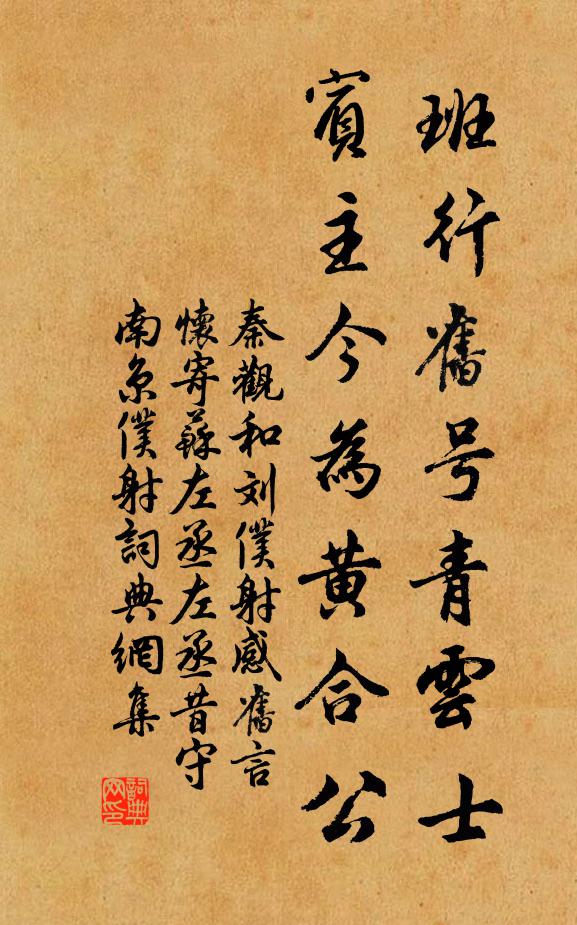 班行舊号青雲士
賓主今為黄合公
秦觀和刘僕射感舊言
懷寄蘇左丞左丞昔守
南京僕射詞典網集
詞典
网印